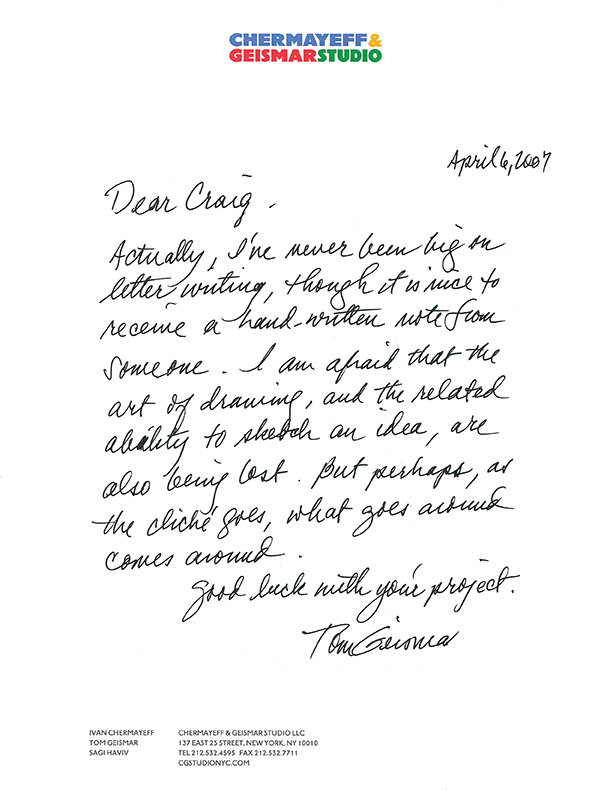 CHERMAYEFF&
GEISMARSTUDIO
April 6, 2007
Dear Craig,
Actually, I've never been big on
letter writing, though it is nice to
receive a hand-written note from
someone. I am afraid that the
art of drawing, and the related
ability to sketch an idea, are
also being lost. But perhaps, as
the cliché goes, what goes around
comes around.
Good luck with your project.
Tom Geismar
IVAN CHERMAYEFF
TOM GEISMAR
SAGI HAVIV
CHERMAYEFF & GEISMAR STUDIO LLC
137 EAST 25 STREET, NEW YORK, NY 10010
TEL 212.532.4595 FAX 212.532.7711
CGSTUDIONYC.COM